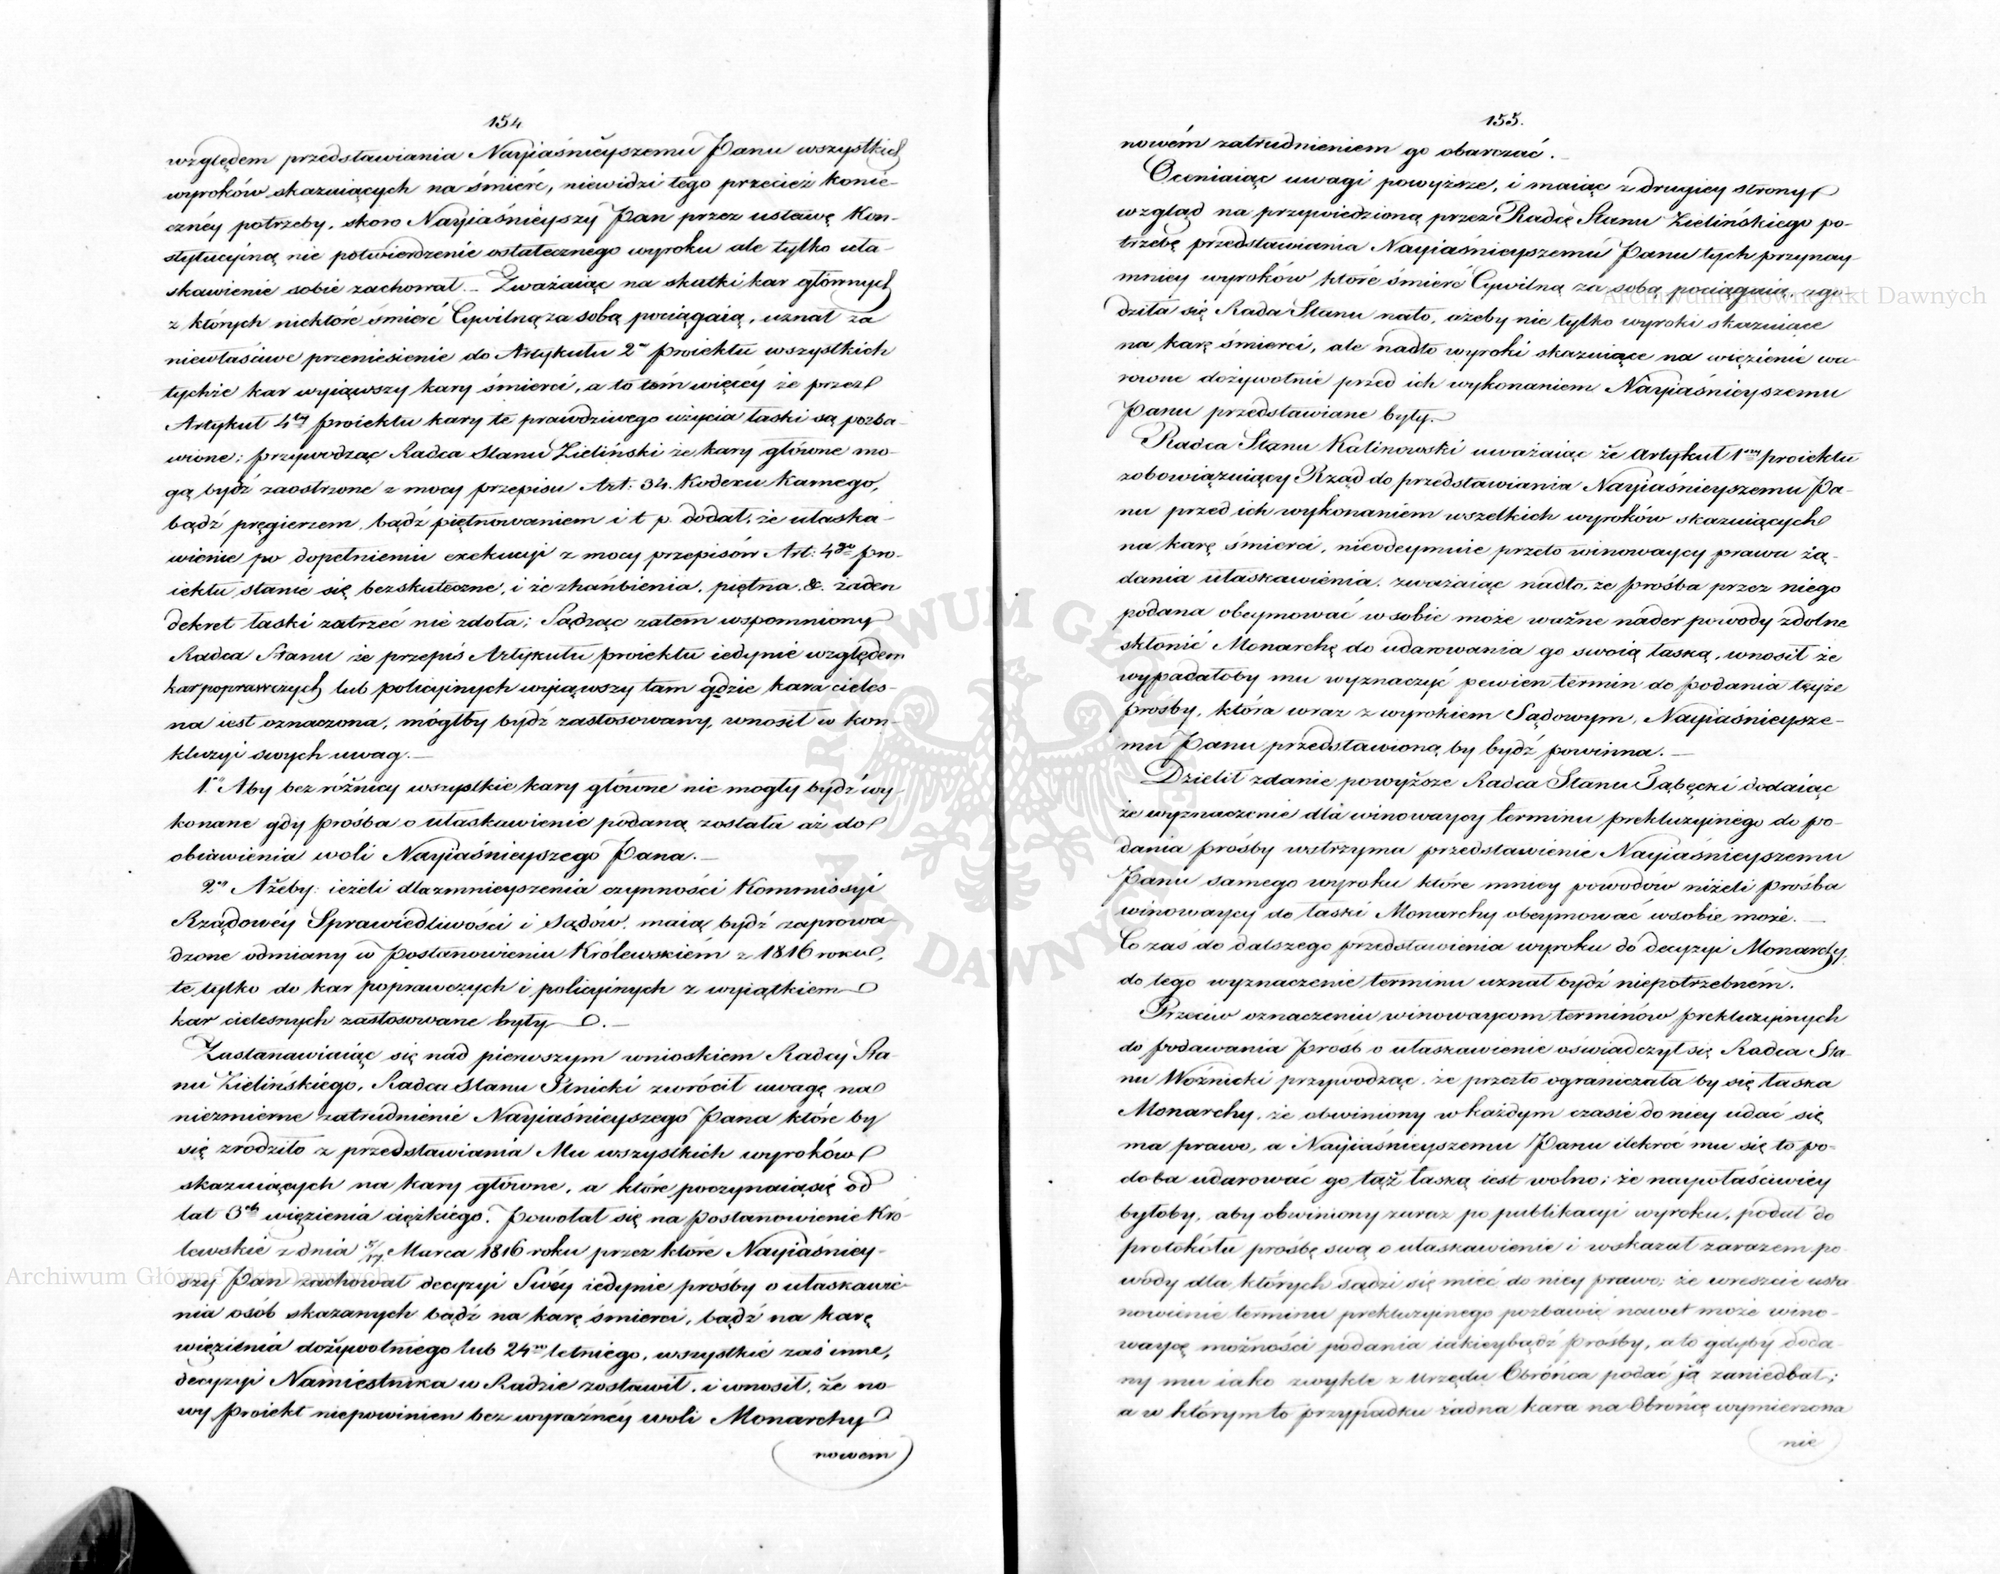 154
względem przedstawiania Nayiaśnieyszemu Panu wszystkich
wyroków skazuiących na śmierć, niewidzi tego przecież konie-
cznéy potrzeby, skoro Nayiaśnieyszy Pan przez ustawę kon-
stytucyiną nie potwierdzenie ostatecznego wyroku ale tylko uła-
skawienie sobie zachował. – Zważaiąc na skutki kar głównych
z których niektóre śmierć Cywilną za sobą pociągaią, uznał za
niewłaściwe przeniesienie do Artykułu 2º proiektu wszystkich
tychże kar wyiąwszy kary śmierci, a to tém więcéy że przez
Artykuł 4ty proiektu kary te prawdziwego użycia łaski są pozba-
wione; przywodząc Radca Stanu Zieliński że kary główne mo-
gą bydź zaostrzone z mocy przepisu Art: 34. Kodexu Karnego,
bądź pręgierzem, bądź piętnowaniem i t p. dodał, że ułaska-
wienie po dopełnieniu exekucyi z mocy przepisów Art: 4go pro-
iektu stanie się bezskuteczne, i że zhańbienia, piętna &. żaden
dekret łaski zatrzeć nie zdoła; Sądząc zatem wspomniony
Radca Stanu że przepis Artykułu proiektu iedynie względem
kar poprawczych lub policyinych wyiąwszy tam gdzie kara cieles-
na iest oznaczona, mógłby bydź zastosowany, wnosił w kon-
kluzyi swych uwag. –
1º Aby bez różnicy wszystkie kary główne nie mogły bydź wy-
konane gdy prośba o ułaskawienie podaną została aż do
obiawienia woli Nayiaśnieyszego Pana. –
2º Ażeby: ieżeli dla zmnieyszenia czynności Kommissyi
Rządowéy Sprawiedliwości i Sądów, maią bydź zaprowa-
dzone odmiany w Postanowieniu Królewskiém z 1816 roku,
te tylko do kar poprawczych i policyinych z wyiątkiem
kar cielesnych zastosowane były. –
Zastanawiaiąc się nad pierwszym wnioskiem Radcy Sta-
nu Zielińskiego, Radca Stanu Glinicki zwrócił uwagę na
niezmierne zatrudnienie Nayiaśnieyszego Pana które by
się zrodziło z przedstawiania Mu wszystkich wyroków
skazuiących na kary główne, a które poczynaią się od
lat 3ch więzienia ciężkiego. Powołał się na Postanowienie Kró-
lewskie z dnia 5/17 Marca 1816 roku przez które Nayiaśniey-
szy Pan zachował decyzyi Swéy iedynie prośby o ułaskawie-
nia osób skazanych bądź na karę śmierci, bądź na karę
więzienia dożywotniego lub 24ro letniego, wszystkie zaś inne,
decyzyi Namiestnika w Radzie zostawił, i wnosił, że no-
wy proiekt niepowinien bez wyraźnéy woli Monarchy
nowem
155.
nowém zatrudnieniem go obarczać. –
Oceniaiąc uwagi powyższe, i maiąc z drugiey strony
wzgląd na przywiedzioną przez Radcę Stanu Zielińskiego po-
trzebę przedstawiania Nayiaśnieyszemu Panu tych przynay-
mniey wyroków które śmierć Cywilną za sobą pociągaią, zgo-
dziła się Rada Stanu na to, ażeby nie tylko wyroki skazuiące
na karę śmierci, ale nadto wyroki skazuiące na więzienie wa-
rowne dożywotnie przed ich wykonaniem Nayiaśnieyszemu
Panu przedstawiane były. –
Radca Stanu Kalinowski uważaiąc że Artykuł 1wszy proiektu
zobowiązuiący Rząd do przedstawiania Nayiaśnieyszemu Pa-
nu przed ich wykonaniem wszelkich wyroków skazuiących
na karę śmierci, nieodeymuie przeto winowaycy prawa żą-
dania ułaskawienia, zważaiąc nadto, że prośba przez niego
podana obeymować w sobie może ważne nader powody zdolne
skłonić Monarchę do udarowania go swoią łaską, wnosił że
wypadałoby mu wyznaczyć pewien termin do podania teyże
prośby, która wraz z wyrokiem Sądowym, Nayiaśnieysze-
mu Panu przedstawioną by bydź powinna. –
Dzielił zdanie powyższe Radca Stanu Gąbecki dodaiąc
że wyznaczenie dla winowaycy terminu prekluzyinego do po-
dania prośby wstrzyma przedstawienie Nayiaśnieyszemu
Panu samego wyroku które mniey powodów niżeli prośba
winowaycy do łaski Monarchy obeymować w sobie może. –
Co zaś do dalszego przedstawienia wyroku do decyzyi Monarchy,
do tego wyznaczenie terminu uznał bydź niepotrzebném.
Przeciw oznaczeniu winowaycom terminów prekluzyinych
do podawania próśb o ułaskawienie oświadczył się Radca Sta-
nu Woźnicki przywodząc, że przezto ograniczała by się łaska
Monarchy, że obwiniony w każdym czasie do niey udać się
ma prawo, a Nayiaśnieyszemu Panu ilekroć mu się to po-
doba udarować go tąż łaską iest wolno; że naywłaściwiey
byłoby, aby obwiniony zaraz po publikacyi wyroku, podał do
protokółu prośbę swą o ułaskawienie i wskazał zarazem po-
wody dla których sądzi się mieć do niey prawo; że wreszcie usta-
nowienie terminu prekluzyinego pozbawić nawet może wino-
waycę możności podania iakieybądź prośby, a to gdyby doda-
ny mu iako zwykle z Urzędu Obrońca podać ją zaniedbał;
a w którym to przypadku żadna kara na Obrońcę wymierzona
nie
Archiwum Główne Akt Dawnych
Archiwum Główne Akt Dawnych
ARCHIWUM GŁÓWNE AKT DAWNYCH